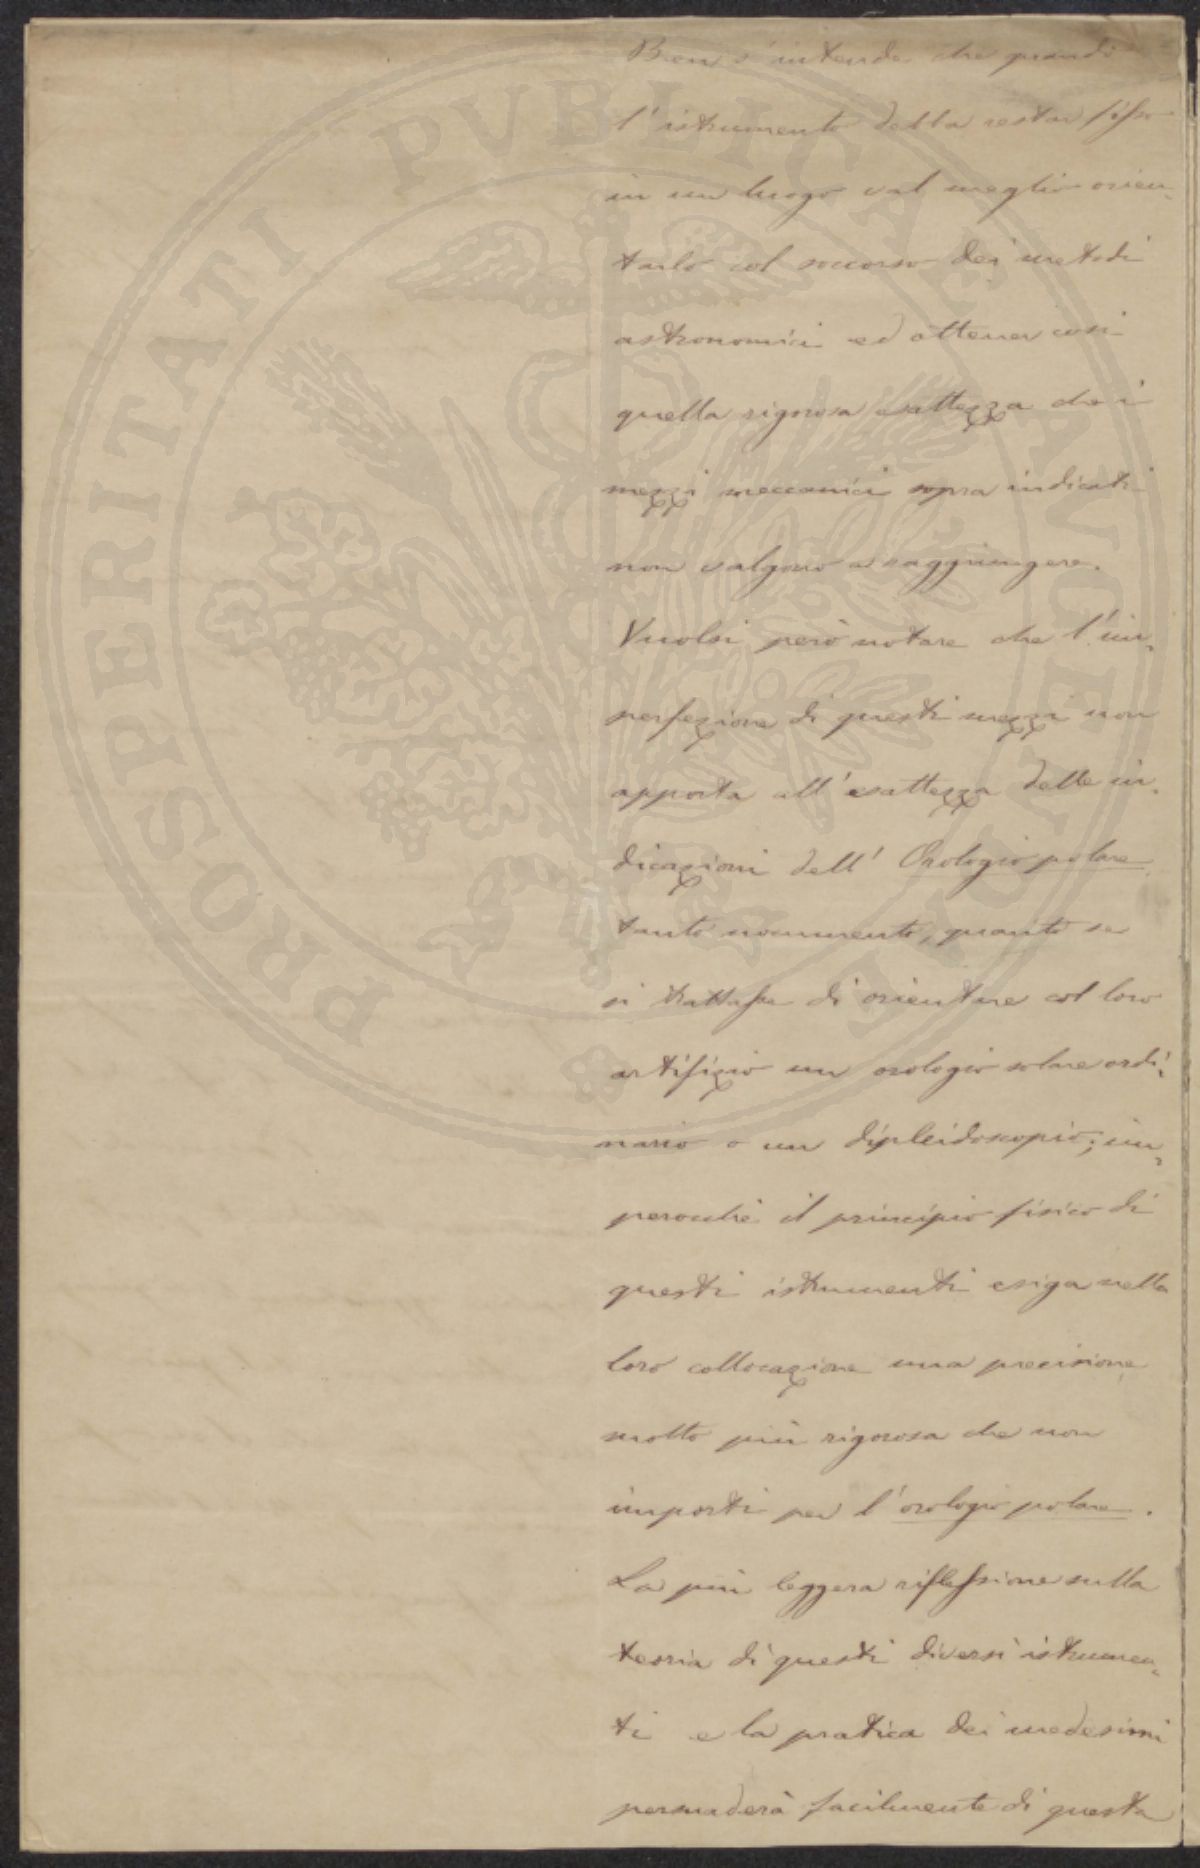 Ben s'intende che quando
l'istrumento debba restar fisso
in un luogo val meglio orien-
tarlo col soccorso dei metodi
astronomici ed ottener così
quella rigorosa esattezza che i
mezzi meccanici sopra indicati
non valgono a raggiungere.
Vuolsi però notare che l'im-
perfezione di questi mezzi non
apporta all'esattezza delle in-
dicazioni dell'Orologio polare
tanto nocumento, quanto se
si trattasse di orientare col loro
artifizio un orologio solare ordi-
nario o un dipleidoscopio; im-
perocchè il principio fisico di
questi istrumenti esiga nella
loro collocazione una precisione
molto più rigorosa che non
importi per l'orologio polare.
La più leggera riflessione sulla
teoria di questi diversi istrumen-
ti e la pratica dei medesimi
persuaderà facilmente di questa
PROSPERITATI PVBLICAE AVGENDAE